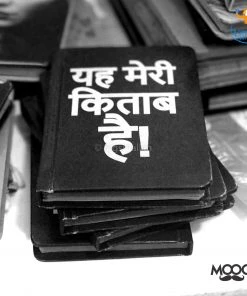 यह मेरी
किताब
है!
MOOC